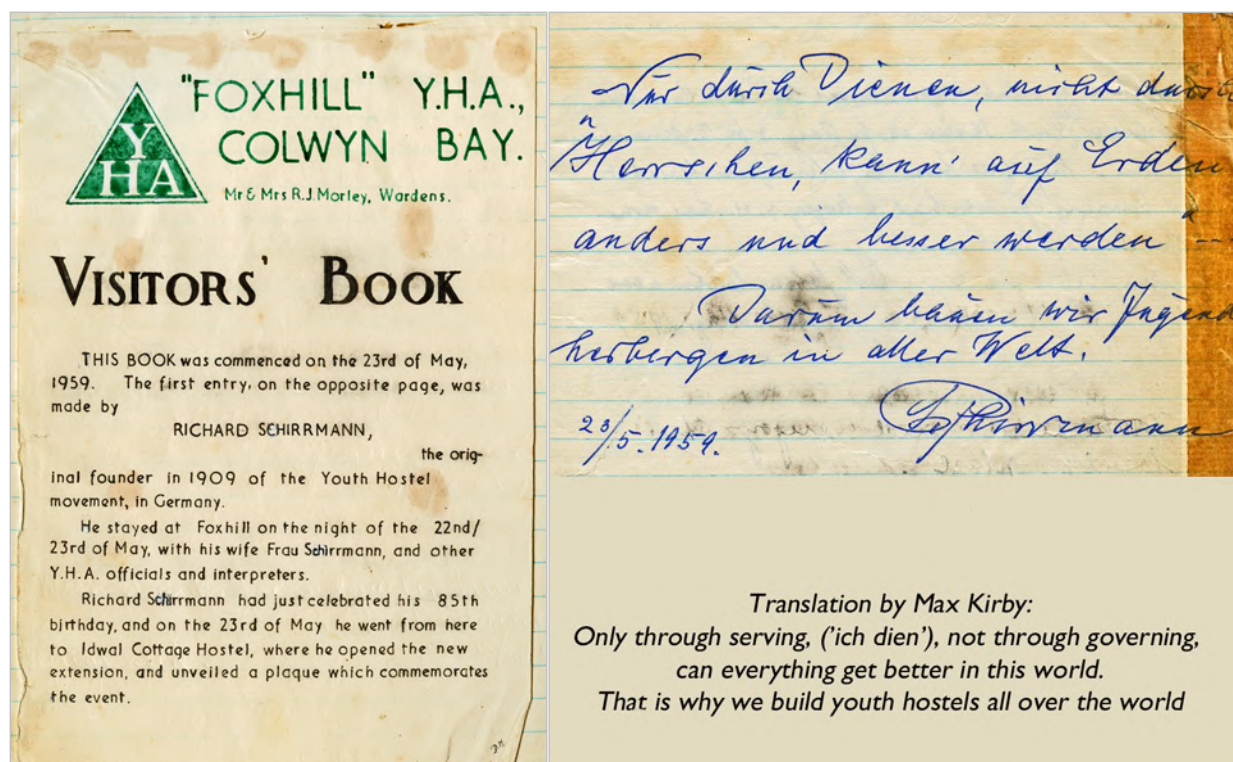 YHA
"FOXHILL" Y.H.A.,
COLWYN BAY.
Mr & Mrs R.J. Morley, Wardens.
VISITORS' BOOK
THIS BOOK was commenced on the 23rd of May,
1959. The first entry, on the opposite page, was
made by
RICHARD SCHIRRMANN,
the orig-
inal founder in 1909 of the Youth Hostel
movement, in Germany.
He stayed at Foxhill on the night of the 22nd/
23rd of May, with his wife Frau Schirrmann, and other
Y.H.A. officials and interpreters.
Richard Schirrmann had just celebrated his 85th
birthday, and on the 23rd of May he went from here
to Idwal Cottage Hostel, where he opened the new
extension, and unveiled a plaque which commemorates
the event.
Nur durch Dienen, nicht durch
"Herrschen, kann' auf Erden
anders und besser werden" --
Darum bauen wir Jugend
herbergen in aller Welt.
23/5.1959. Schirrmann
Translation by Max Kirby:
Only through serving, ('ich dien'), not through governing,
can everything get better in this world.
That is why we build youth hostels all over the world